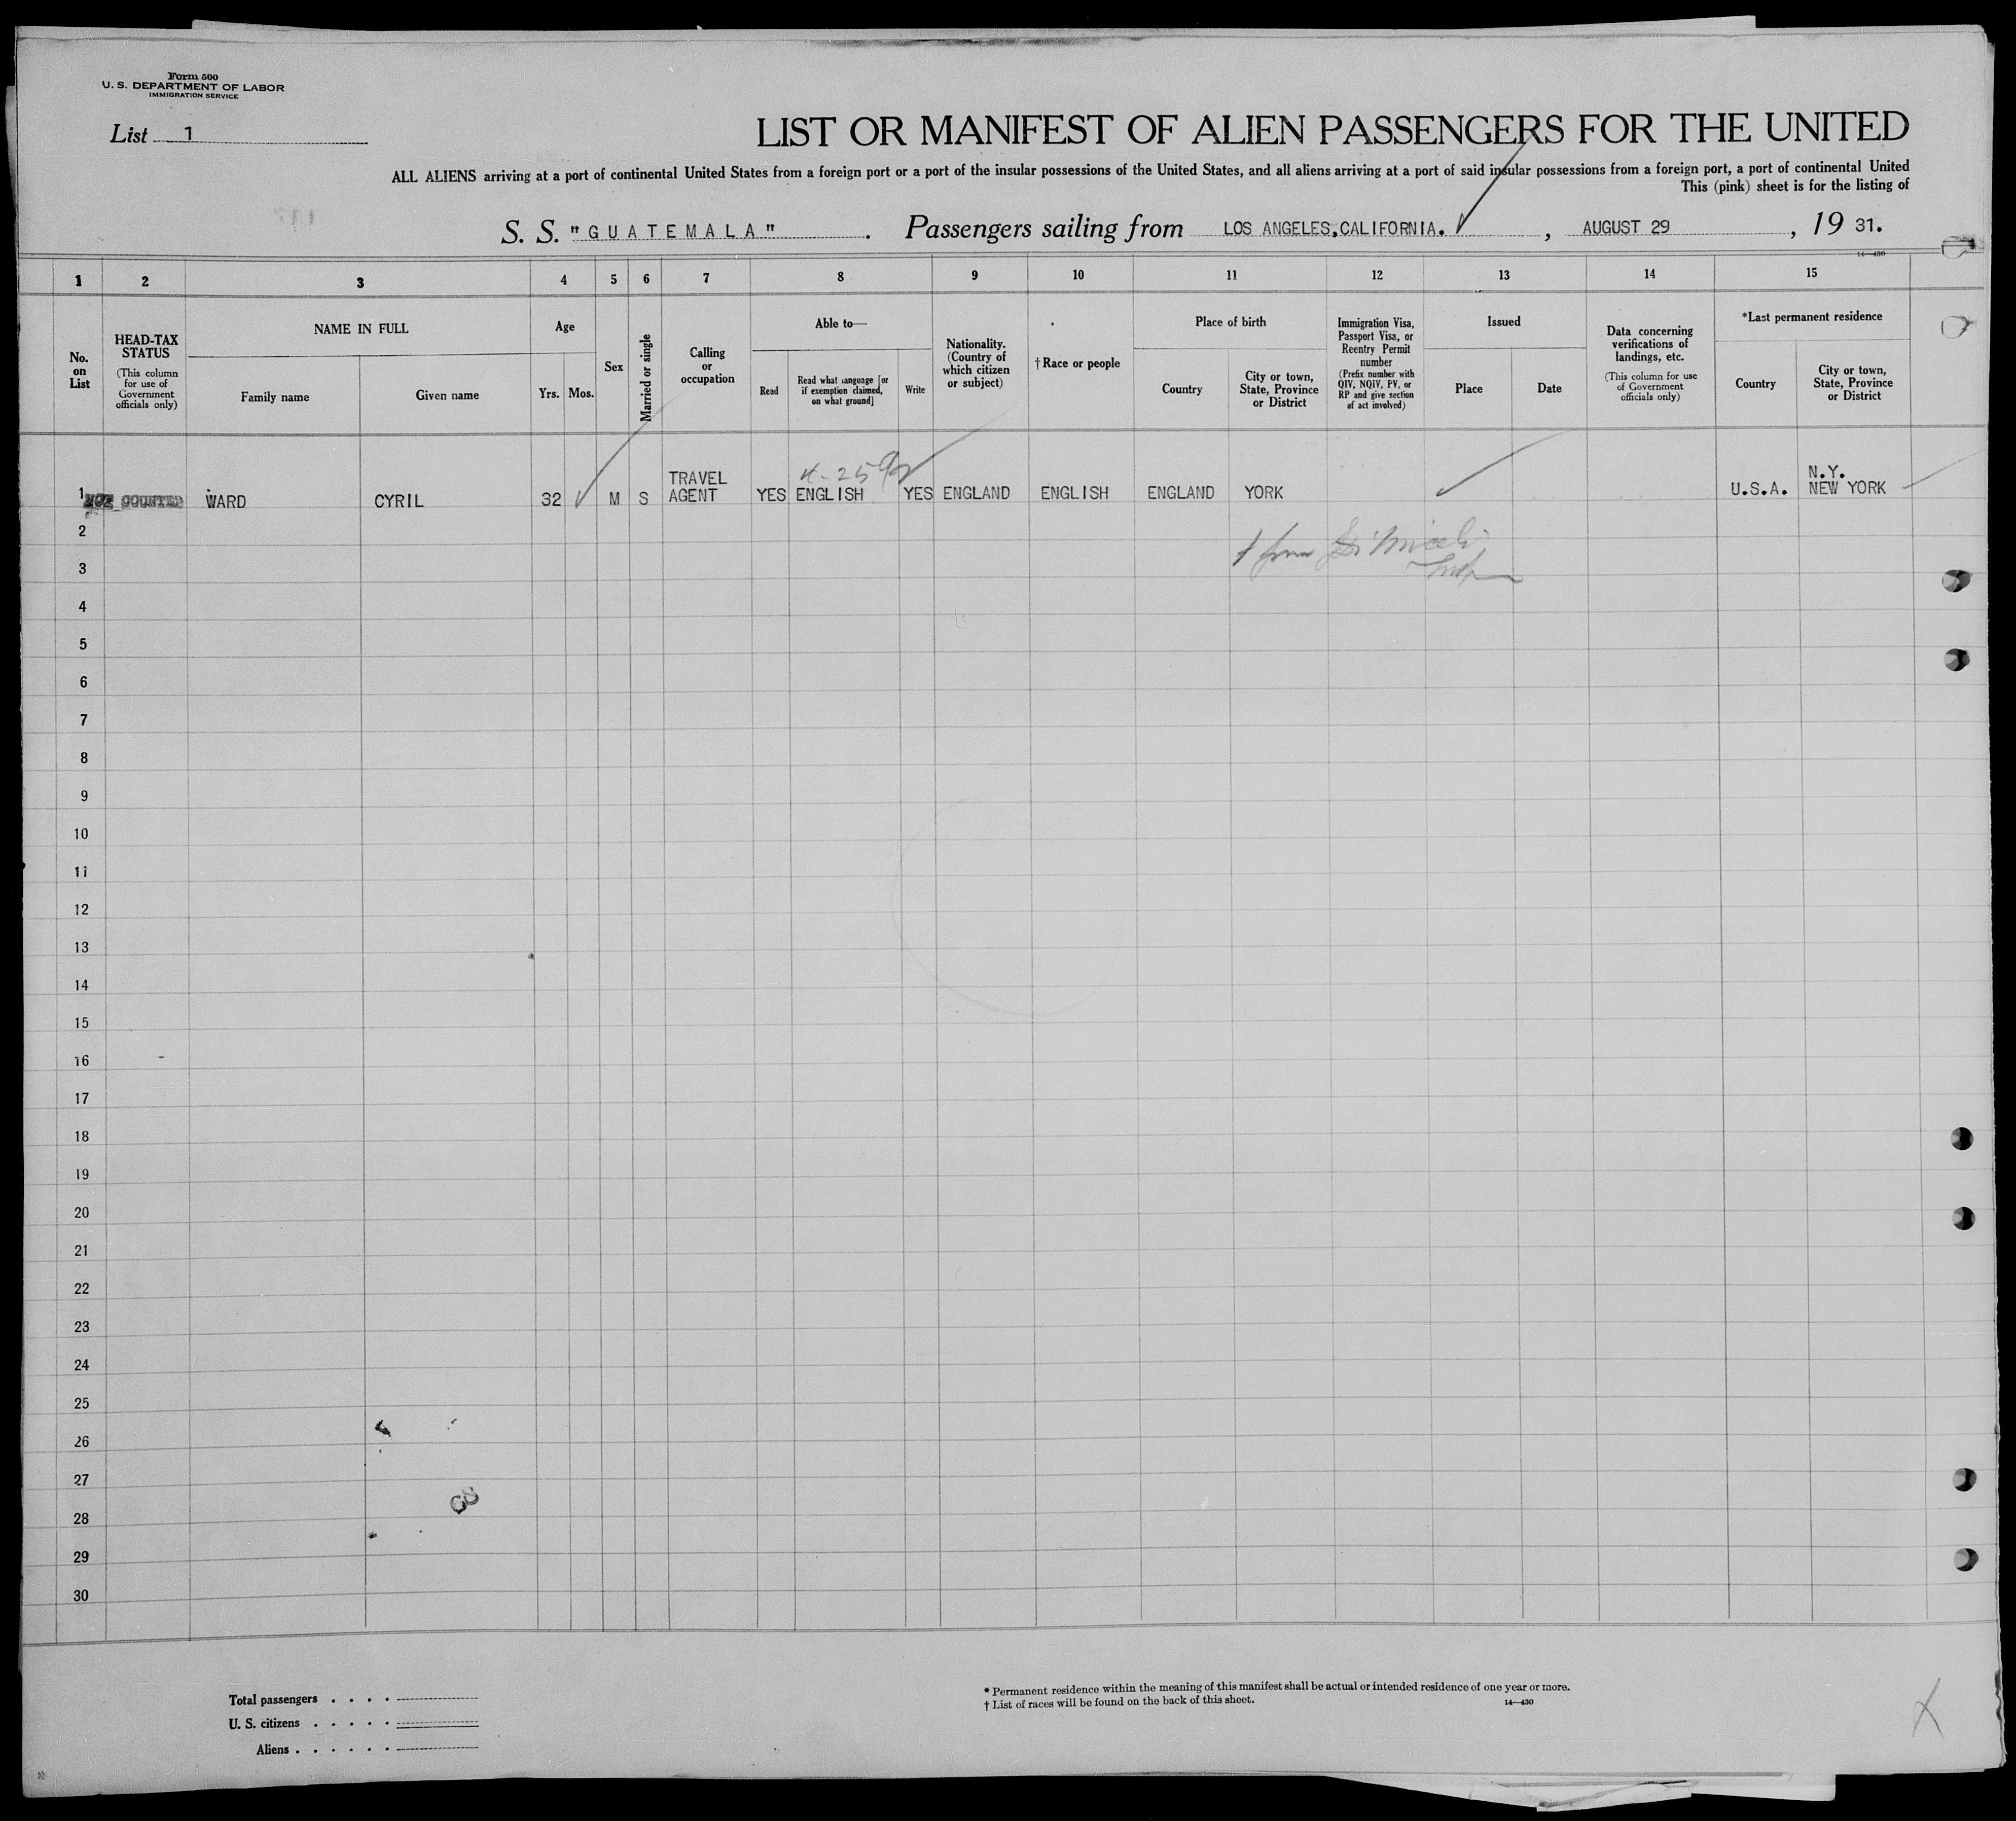 Form 500
U. S. DEPARTMENT OF LABOR
IMMIGRATION SERVICE
List 1
LIST OR MANIFEST OF ALIEN PASSENGERS FOR THE UNITED
ALL ALIENS arriving at a port of continental United States from a foreign port or a port of the insular possessions of the United States, and all aliens arriving at a port of said insular possessions from a foreign port, a port of continental United
This (pink) sheet is for the listing of
S. S. "GUATEMALA". Passengers sailing from LOS ANGELES,CALIFORNIA. , AUGUST 29 , 19 31.
14-430
1 2 3 4 5 6 7 8 9 10 11 12 13 14 15
No. on List
HEAD-TAX STATUS
(This column for use of Government officials only)
NAME IN FULL
Family name
Given name
Age
Yrs. Mos.
Sex
Married or single
Calling or occupation
Able to—
Read
Read what language [or if exemption claimed, on what ground]
Write
Nationality. (Country of which citizen or subject)
† Race or people
Place of birth
Country
City or town, State, Province or District
Immigration Visa, Passport Visa, or Reentry Permit number
(Prefix number with QIV, NQIV, PV, or RP and give section of act involved)
Issued
Place
Date
Data concerning verifications of landings, etc.
(This column for use of Government officials only)
*Last permanent residence
Country
City or town, State, Province or District
1 NOT COUNTED WARD CYRIL 32 M S TRAVEL AGENT YES ENGLISH YES ENGLAND ENGLISH ENGLAND YORK U.S.A. N.Y. NEW YORK
2
3
4
5
6
7
8
9
10
11
12
13
14
15
16
17
18
19
20
21
22
23
24
25
26
27
28
29
30
Total passengers . . . .
U. S. citizens . . . . .
Aliens . . . . . .
* Permanent residence within the meaning of this manifest shall be actual or intended residence of one year or more.
† List of races will be found on the back of this sheet.
14-430